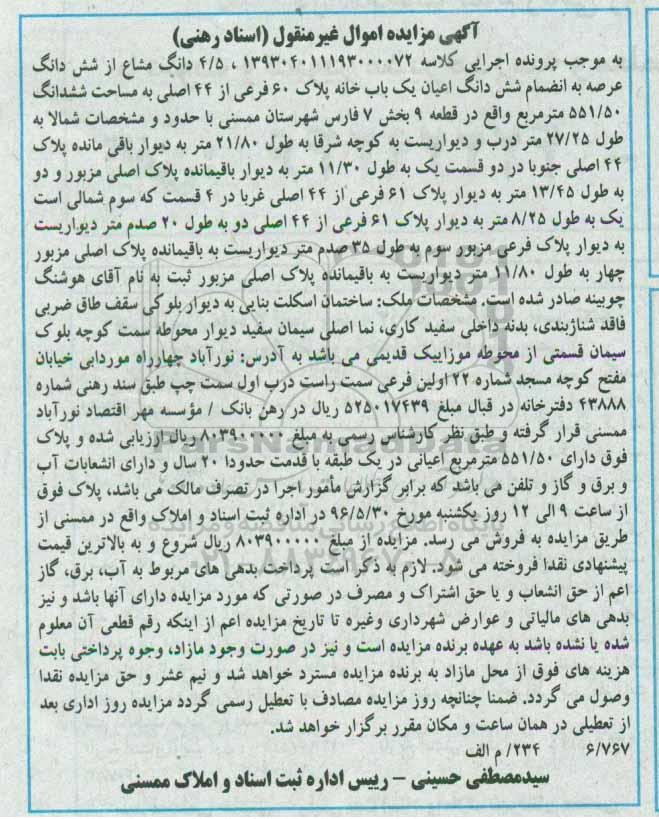 آگهی مزایده اموال غیرمنقول (اسناد رهنی)
به موجب پرونده اجرایی کلاسه ۱۳۹۳۰۴۰۱۱۱۹۳۰۰۰۰۷۲ ، ۴/۵ دانگ مشاع از شش دانگ
عرصه به انضمام شش دانگ اعیان یک باب خانه پلاک ۶۰ فرعی از ۴۴ اصلی به مساحت ششدانگ
۵۵۱/۵۰ مترمربع واقع در قطعه ۹ بخش ۷ فارس شهرستان ممسنی با حدود و مشخصات شمالا به
طول ۲۷/۲۵ متر درب و دیواریست به کوچه شرقا به طول ۲۱/۸۰ متر به دیوار باقی مانده پلاک
۴۴ اصلی جنوبا در دو قسمت یک به طول ۱۱/۳۰ متر به دیوار باقیمانده پلاک اصلی مزبور و دو
به طول ۱۳/۴۵ متر به دیوار پلاک ۶۱ فرعی از ۴۴ اصلی غربا در ۴ قسمت که سوم شمالی است
یک به طول ۸/۲۵ متر به دیوار پلاک ۶۱ فرعی از ۴۴ اصلی دو به طول ۲۰ صدم متر دیواریست
به دیوار پلاک فرعی مزبور سوم به طول ۳۵ صدم متر دیواریست به باقیمانده پلاک اصلی مزبور
چهار به طول ۱۱/۸۰ متر دیواریست به باقیمانده پلاک اصلی مزبور ثبت به نام آقای هوشنگ
چوبینه صادر شده است. مشخصات ملک: ساختمان اسکلت بنایی به دیوار بلوکی سقف طاق ضربی
فاقد شناژبندی، بدنه داخلی سفید کاری، نما اصلی سیمان سفید دیوار محوطه سمت کوچه بلوک
سیمان قسمتی از محوطه موزاییک قدیمی می باشد به آدرس: نورآباد چهارراه موردابی خیابان
مفتح کوچه مسجد شماره ۲۲ اولین فرعی سمت راست درب اول سمت چپ طبق سند رهنی شماره
۴۳۸۸۸ دفترخانه در قبال مبلغ ۵۲۵۰۱۷۴۳۹ ریال در رهن بانک / مؤسسه مهر اقتصاد نورآباد
ممسنی قرار گرفته و طبق نظر کارشناس رسمی به مبلغ ۸۰۳۹۰۰۰۰۰ ریال ارزیابی شده و پلاک
فوق دارای ۵۵۱/۵۰ مترمربع اعیانی در یک طبقه با قدمت حدودا ۲۰ سال و دارای انشعابات آب
و برق و گاز و تلفن می باشد که برابر گزارش مأمور اجرا در تصرف مالک می باشد، پلاک فوق
از ساعت ۹ الی ۱۲ روز یکشنبه مورخ ۹۶/۵/۳۰ در اداره ثبت اسناد و املاک واقع در ممسنی از
طریق مزایده به فروش می رسد. مزایده از مبلغ ۸۰۳۹۰۰۰۰۰ ریال شروع و به بالاترین قیمت
پیشنهادی نقدا فروخته می شود. لازم به ذکر است پرداخت بدهی های مربوط به آب، برق، گاز
اعم از حق انشعاب و یا حق اشتراک و مصرف در صورتی که مورد مزایده دارای آنها باشد و نیز
بدهی های مالیاتی و عوارض شهرداری وغیره تا تاریخ مزایده اعم از اینکه رقم قطعی آن معلوم
شده یا نشده باشد به عهده برنده مزایده است و نیز در صورت وجود مازاد، وجوه پرداختی بابت
هزینه های فوق از محل مازاد به برنده مزایده مسترد خواهد شد و نیم عشر و حق مزایده نقدا
وصول می گردد. ضمنا چنانچه روز مزایده مصادف با تعطیل رسمی گردد مزایده روز اداری بعد
از تعطیلی در همان ساعت و مکان مقرر برگزار خواهد شد.
۶/۷۶۷ ۲۳۴/ م الف
سیدمصطفی حسینی – رییس اداره ثبت اسناد و املاک ممسنی
ParsNamadData